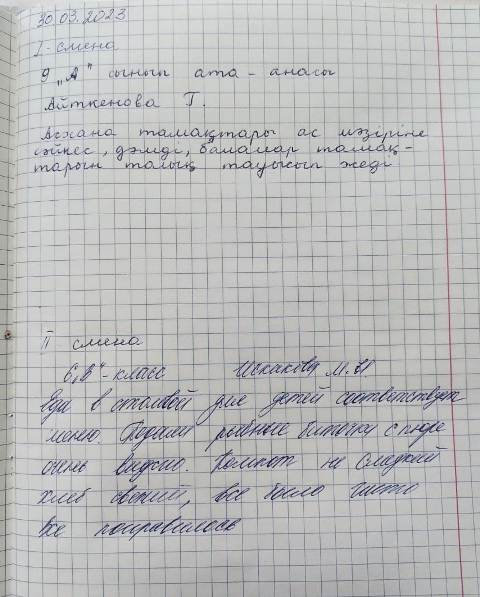 30.03.2023
I-смена
9 „А" сынып ата-анасы
Айткенова Г.
Асхана тамақтары ас мәзіріне
сәйкес, дәмді, балалар тамақ-
тарын толық тауысып жеді
II смена
6„В"-класс Искакова М.И
Еда в столовой для детей соответствует
меню. Подали рыбные биточки с пюре
очень вкусно. Компот не сладкий
хлеб свежий, все было чисто
Все понравилось